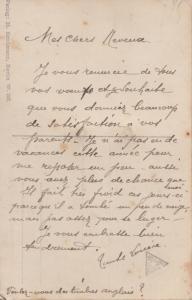 Mes chers Neveux
Je vous remercie de tous
vos voeux et je souhaite
que vous donniez beaucoup
de satisfaction à vos
parents. Je n'ai pas eu de
vacances cette année pour
me reposer un peu autre
vous avez plus de chance que
moi
Il fait très froid ces jours-ci
parce qu'il a tombé un peu de neige
mais pas assez pour se luger.
Je vous embrasse bien
tendrement.
Tante Louise
Voulez-vous des timbres anglais ?